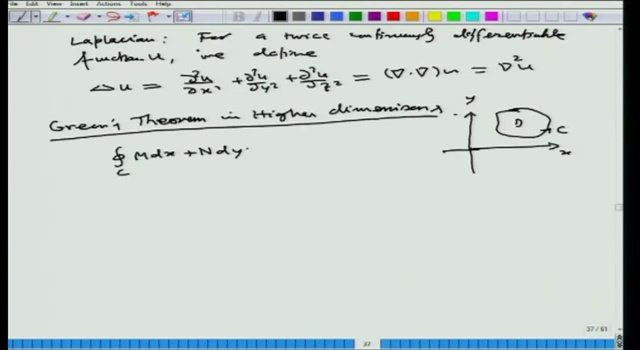 File Edit View Insert Actions Tools Help
Laplacian: For a twice continuously differentiable
function u, we define
Δu = ∂²u/∂x² + ∂²u/∂y² + ∂²u/∂z² = (∇·∇)u = ∇²u
Green's Theorem in Higher dimensions.
y
D
C
x
∮_C Mdx + Ndy.
37 / 61
37